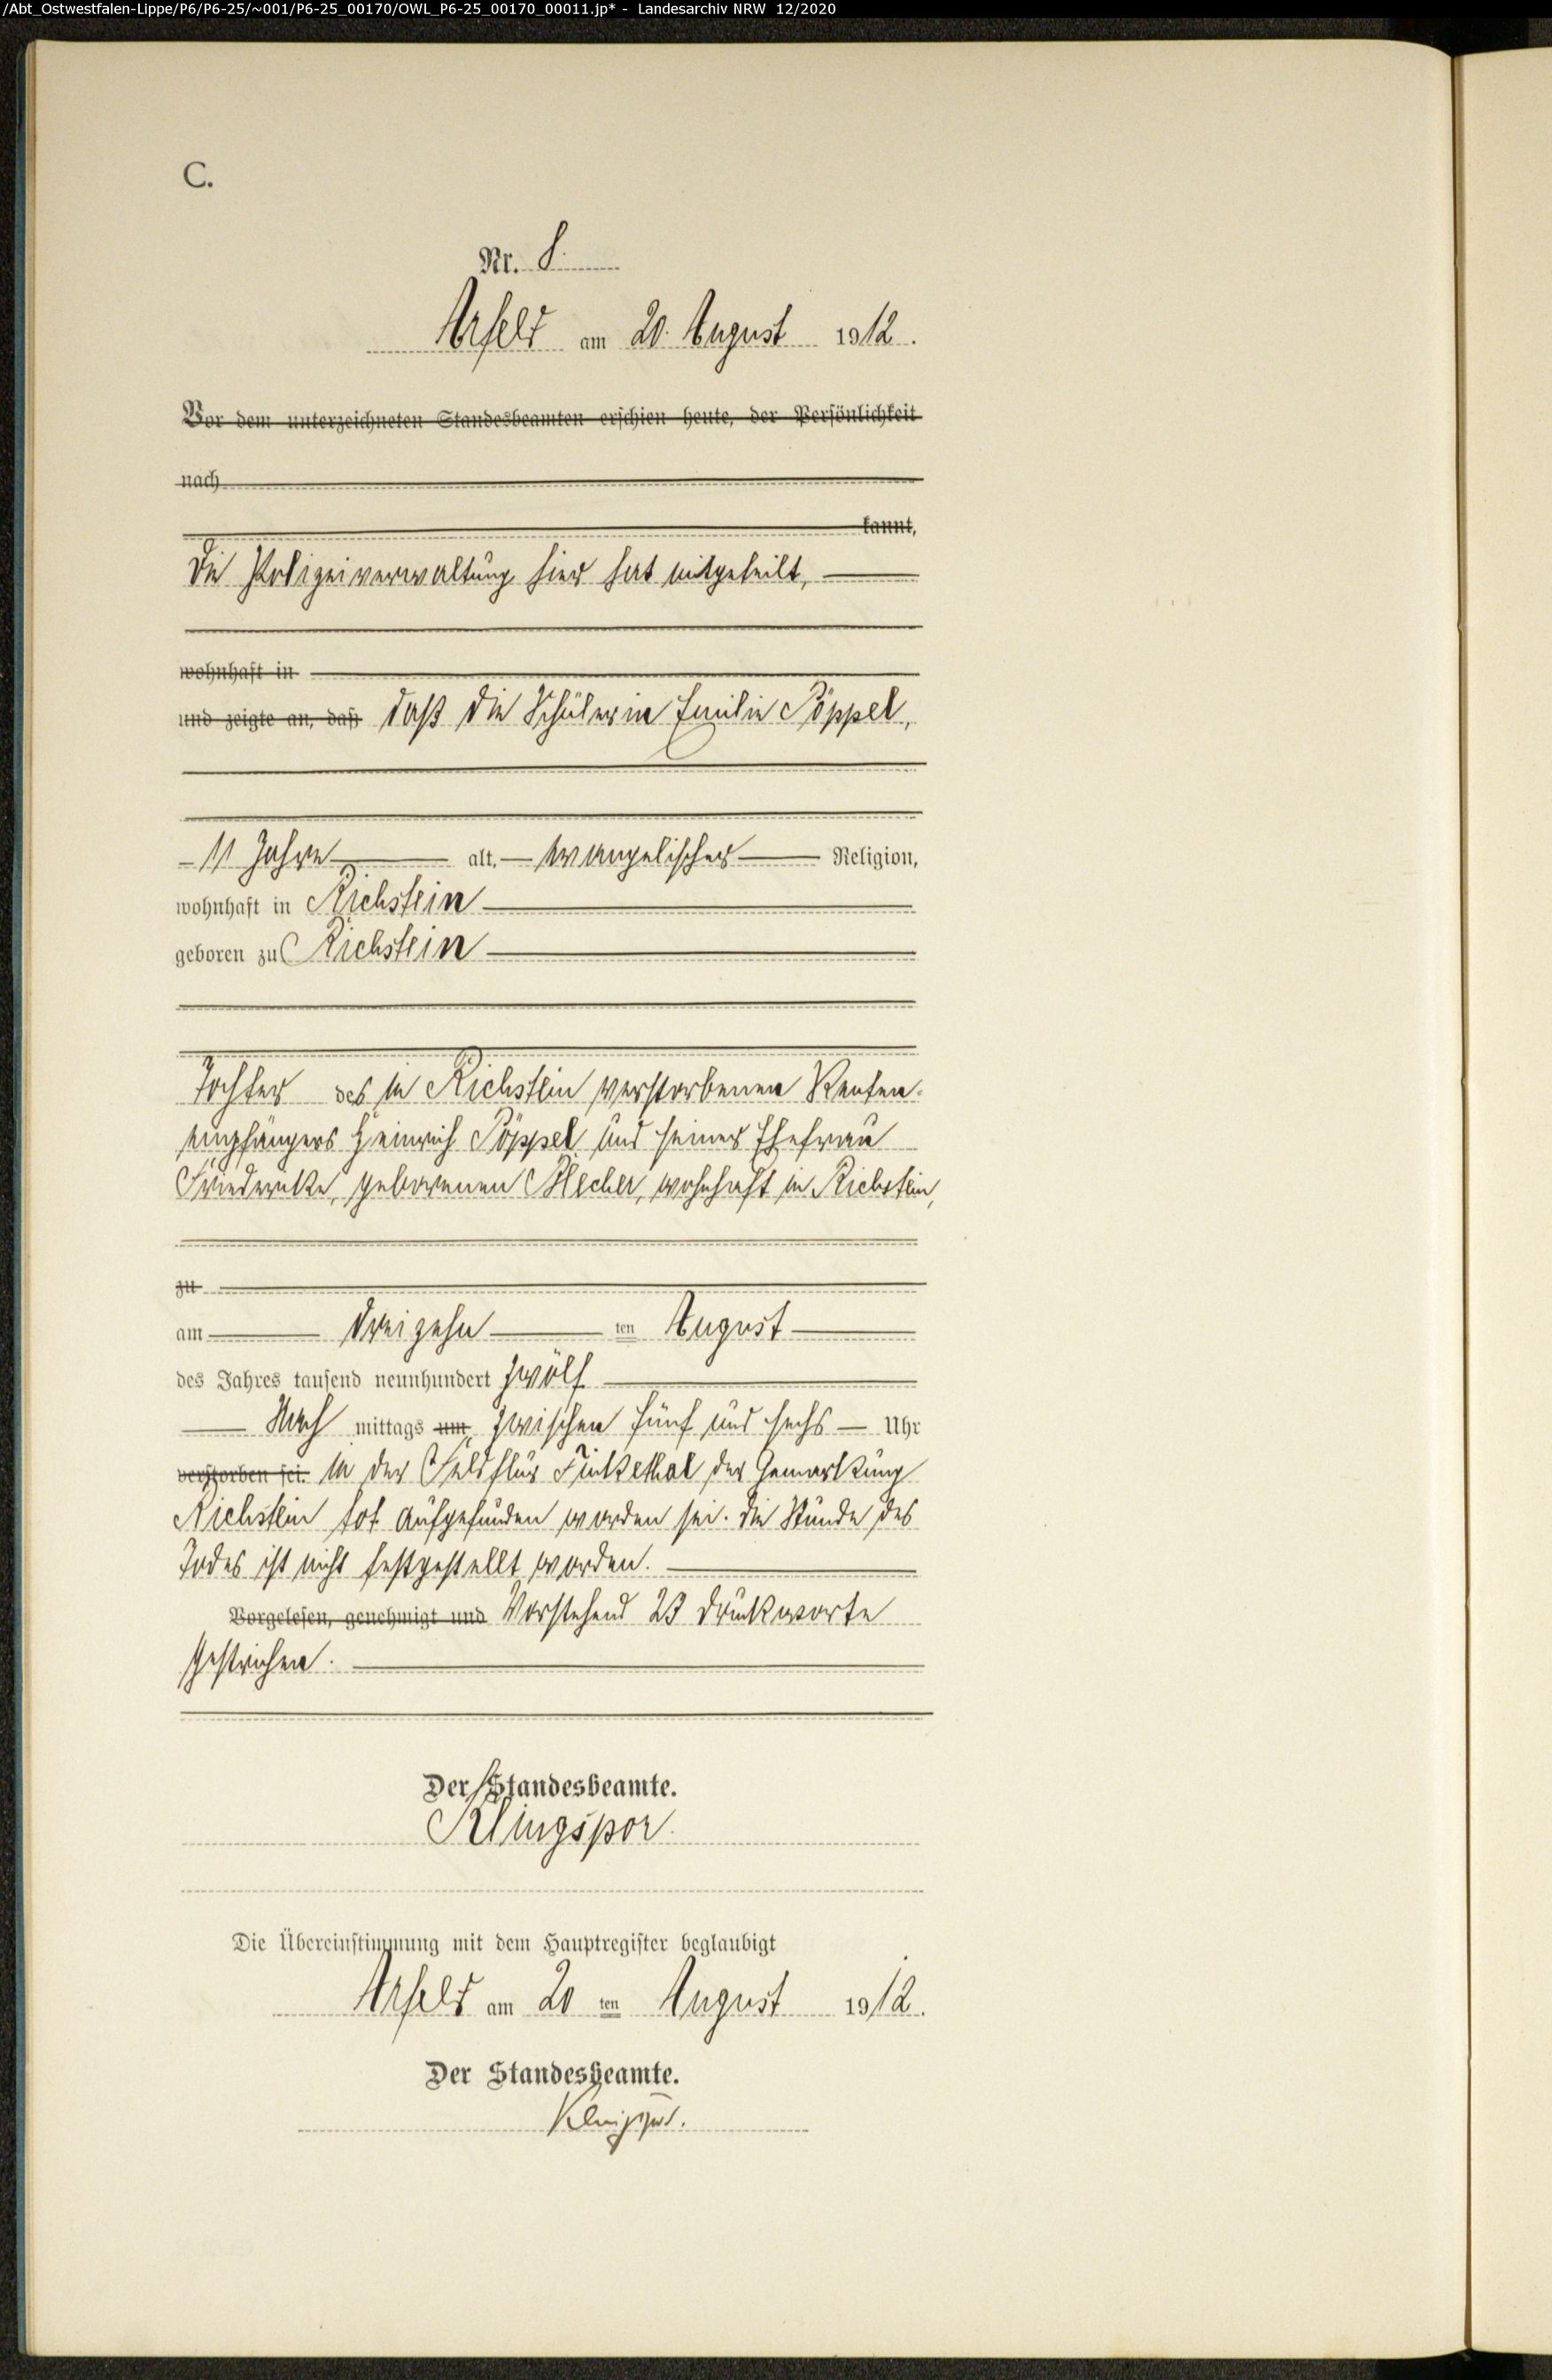 /Abt_Ostwestfalen-Lippe/P6/P6-25/~001/P6-25_00170/OWL_P6-25_00170_00011.jp* - Landesarchiv NRW 12/2020
C.
Nr. 8.
Arfeld am 20. August 1912.
Vor dem unterzeichneten Standesbeamten erschien heute, der Persönlichkeit
nach
kannt,
Die Polizeiverwaltung hier hat mitgeteilt,
wohnhaft in
und zeigte an, daß daß die Schülerin Emilie Pöppel,
11 Jahre alt, evangelischer Religion,
wohnhaft in Richstein
geboren zu Richstein
Tochter des in Richstein verstorbenen Renten-
empfängers Heinrich Pöppel und seiner Ehefrau
Friederike, geborenen Blecher, wohnhaft in Richstein,
zu
am dreizehn ten August
des Jahres tausend neunhundert zwölf
Nach mittags um zwischen fünf und sechs Uhr
verstorben sei. in der Feldflur Finkethal der Gemarkung
Richstein tot aufgefunden worden sei. Die Stunde des
Todes ist nicht festgestellt worden.
Vorgelesen, genehmigt und Vorstehend 23 Druckworte
gestrichen.
Der Standesbeamte.
Klingspor.
Die Übereinstimmung mit dem Hauptregister beglaubigt
Arfeld am 20 ten August 1912.
Der Standesbeamte.
Klingspor.